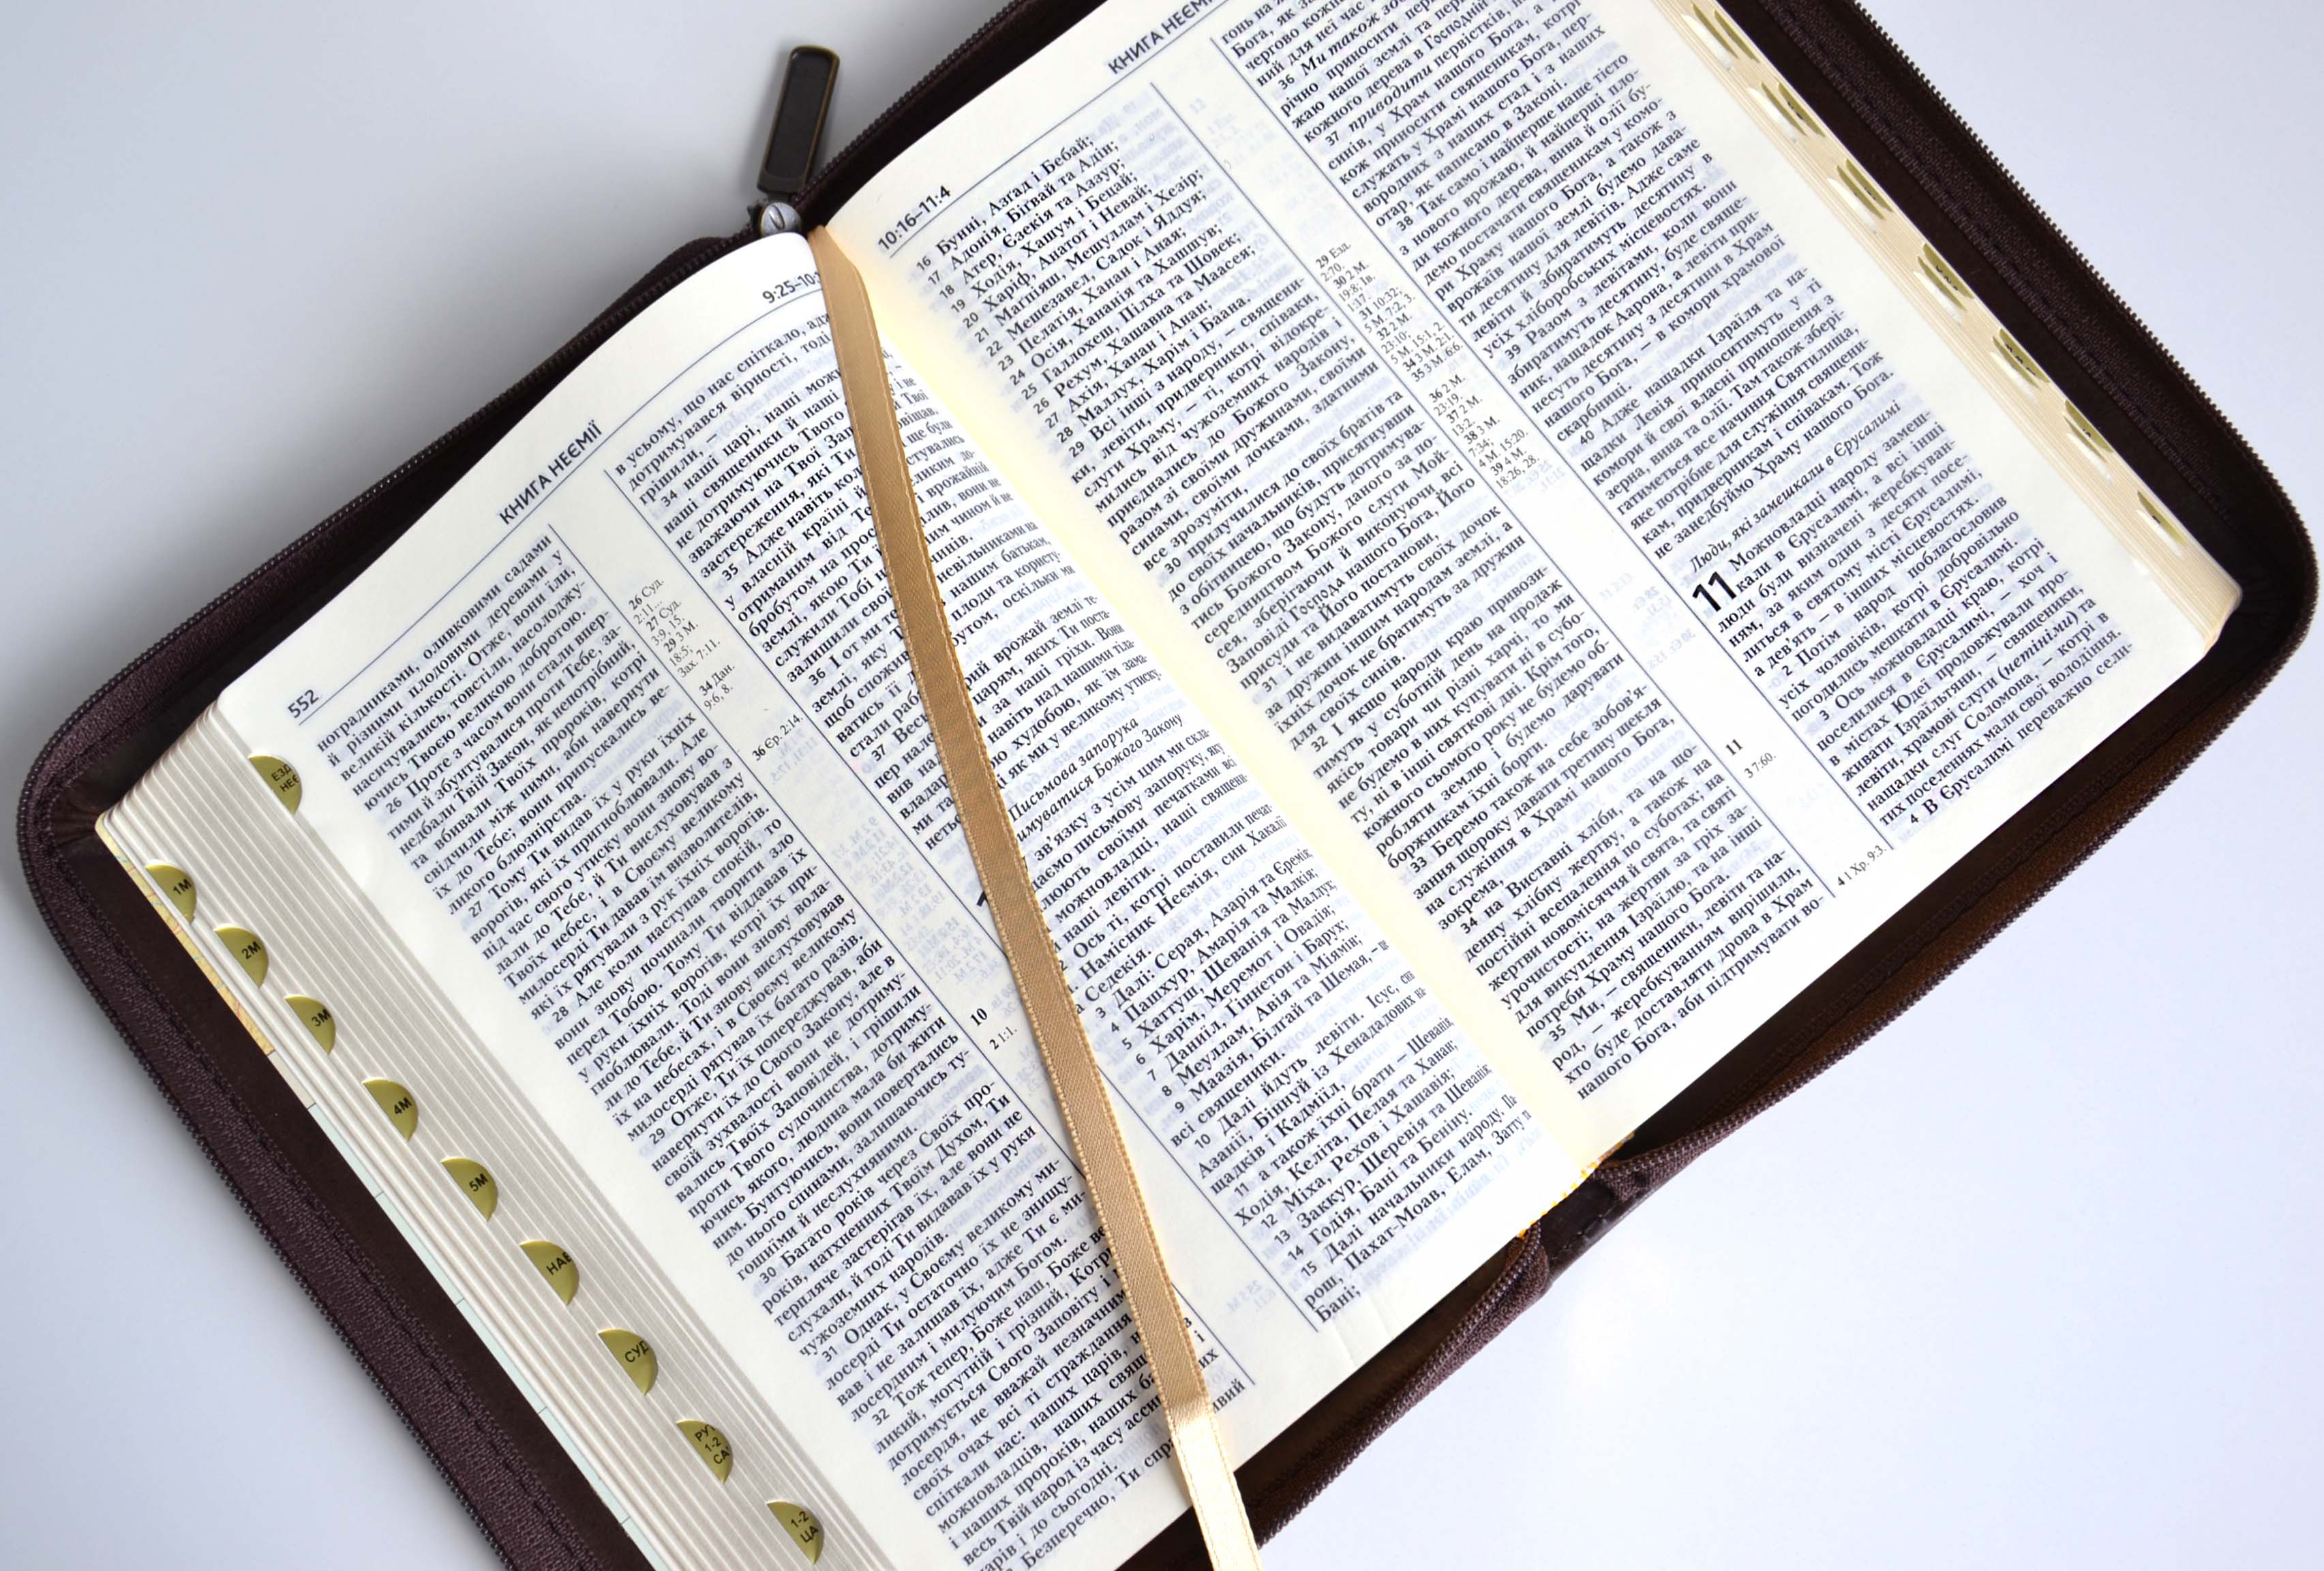 552
КНИГА НЕЄМІЇ
9:25–10:
ноградниками, оливковими садами
й різними плодовими деревами у
великій кількості. Отже, вони їли,
насичувались, товстіли, насолоджу-
ючись Твоєю великою добротою.
26 Проте з часом вони стали впер-
тими й збунтувалися проти Тебе, за-
недбали Твій Закон, як непотрібний,
та вбивали Твоїх пророків, котрі
свідчили між ними, аби навернути
їх до Тебе; вони припускались ве-
ликого блюзнірства.
27 Тому Ти видав їх у руки їхніх
ворогів, які їх пригноблювали. Але
під час свого утиску вони знову во-
лали до Тебе, й Ти вислуховував з
Твоїх небес, і в Своєму великому
милосерді Ти давав їм визволителів,
які їх рятували з рук їхніх ворогів.
28 Але коли наступав спокій, то
вони знову починали творити зло
перед Тобою. Тому Ти віддавав їх
у руки їхніх ворогів, котрі їх при-
гноблювали. Тоді вони знову вола-
ли до Тебе, й Ти знову вислуховував
їх на небесах, і в Своєму великому
милосерді рятував їх багато разів.
29 Отже, Ти їх попереджував, аби
навернути їх до Свого Закону, але в
своїй зухвалості вони не дотриму-
вались Твоїх Заповідей, і грішили
проти Твого судочинства, дотриму-
ючись якого, людина мала би жити
ним. Бунтуючись, вони повертались
до нього спинами, залишаючись ту-
гошиїми й неслухняними.
30 Багато років через Своїх про-
років, натхненних Твоїм Духом, Ти
терпляче застерігав їх, але вони не
слухали, й тоді Ти видавав їх у руки
чужоземних народів.
31 Однак, у Своєму великому ми-
лосерді Ти остаточно їх не знищу-
вав і не залишав їх, адже Ти є ми-
лосердним і милуючим Богом.
32 Тож тепер, Боже наш, Боже ве
ликий, могутній і грізний, Котри
дотримується Свого Заповіту і
лосердя, не вважай незначним
своїх очах всі ті страждання
спіткали нас: наших царів,
можновладців, наших свящ
і наших пророків, наших б
весь Твій народ із часу асси
арів і до сьогодні.
Безперечно, Ти спра
26 Суд.
2:11.
27 Суд.
3:9, 15.
29 3 М.
18:5;
Зах. 7:11.
34 Дан.
9:6, 8.
36 Єр. 2:14.
10
2 1:1.
в усьому, що нас спіткало, ад
дотримувався вірності, тоді
грішили, –
34 наші царі, наші мож
наші священики й наші
не дотримуючись Твого
зважаючи на Твої Зап
застереження, які Ти
35 Адже навіть кол
у власній країні й
отриманим від Те
бробутом на прос
землі, якою Ти ї
служили Тобі н
залишили свої
36 І от ми т
землі, яку Т
щоб спожив
ватись її
стали раб
37 Весь
пер нал
вив на
владар
ми та
неть
Письмова запорука
зв'язку з усім цим ми скла-
ємо письмову запоруку, яку
юють своїми печатками всі
можновладці, наші священи
наші левіти.
2 Ось ті, котрі поставили печат-
Намісник Неємія, син Хакалії
Седекія;
3 Далі: Серая, Азарія та Єремія;
4 Пашхур, Амарія та Малкія;
5 Хаттуш, Шеванія та Малух,
6 Харім, Меремот і Овадія;
7 Даниїл, Гіннетон і Барух;
8 Мешуллам, Авія та Міямін;
9 Маазія, Білгай та Шемая, –
всі священики.
10 Далі йдуть левіти. Ісус, си
Азанії, Біннуй із Хенададових на
щадків і Кадміїл,
11 а також їхні брати – Шеванія
Ходія, Келіта, Пелая та Ханан;
12 Міха, Рехов і Хашавія;
13 Заккур, Шеревія та Шеванія
14 Годія, Бані та Беніну.
15 Далі начальники народу. Па
рош, Пахат-Моав, Елам, Затту
Бані;
10:16–11:4
КНИГА НЕЄМІЇ
16 Бунні, Азгад і Бебай;
17 Адонія, Бігвай та Адін;
18 Атер, Єзекія та Аззур;
19 Ходія, Хашум і Бецай;
20 Харіф, Анатот і Невай;
21 Магпіяш, Мешуллам і Хезір;
22 Мешезавел, Садок і Яддуя;
23 Пелатія, Ханан і Аная;
24 Осія, Хананія та Хашшув;
25 Галлохеш, Пілха та Шовек;
26 Рехум, Хашавна та Маасея;
27 Ахія, Ханан і Анан;
28 Маллух, Харім і Баана.
29 Всі інші з народу, – священи-
ки, левіти, придверники, співаки,
слуги Храму, – ті, котрі відокре-
мились від чужоземних народів і
приєднались до Божого Закону,
разом зі своїми дружинами, своїми
синами, своїми дочками, здатними
все зрозуміти,
30 прилучилися до своїх братів та
до своїх начальників, присягнувши
з обітницею, що будуть дотримува-
тись Божого Закону, даного за по-
середництвом Божого слуги Мой-
сея, зберігаючи й виконуючи всі
Заповіді Господа нашого Бога, Його
присуди та Його постанови,
31 і не видаватимуть своїх дочок
за дружин іншим народам землі, а
їхніх дочок не братимуть за дружин
для своїх синів.
32 І якщо народи краю привози-
тимуть у суботній день на продаж
якісь товари чи різні харчі, то ми
не будемо в них купувати ні в субо-
ту, ні в інші святкові дні. Крім того,
кожного сьомого року не будемо об-
робляти землю і будемо дарувати
боржникам їхні борги.
33 Беремо також на себе зобов'я-
зання щороку давати третину шекля
на служіння в Храмі нашого Бога,
зокрема,
34 на Виставні хліби, та на що-
денну хлібну жертву, а також на
постійні всепалення по суботах; на
жертви новомісяччя й свята, та святі
урочистості; на жертви за гріх за-
для викуплення Ізраїлю, та на інші
потреби Храму нашого Бога.
35 Ми, – священики, левіти та на-
род, – жеребкуванням вирішили,
хто буде доставляти дрова в Храм
нашого Бога, аби підтримувати во-
29 Езд.
2:70.
30 2 М.
19:8; Ів.
1:17.
31 10:32;
5 М. 7:2, 3.
32 2 М.
23:10;
5 М. 15:1, 2.
34 3 М. 2:1.
35 3 М. 6:6.
36 2 М.
23:19.
37 2 М.
13:2.
38 3 М.
7:34;
4 М. 15:20.
39 4 М.
18:26, 28.
11
3 7:60.
4 1 Хр. 9:3.
36 Ми також зо
річно приносити пер
жаю нашої землі та пер
кожного дерева в Господній
37 приводити первістків,
синів, у Храм нашого Бога, а
кож приносити священикам, котрі
служать у Храмі нашого Бога, пер-
вородних з наших стад і з наших
отар, як написано в Законі.
38 Так само і найперше наше тісто
з нового врожаю, й найперші пло-
ди кожного дерева, вина й олії бу-
демо постачати священикам у комо-
ри Храму нашого Бога, а також з
врожаїв нашої землі будемо дава-
ти десятину для левітів. Адже саме
левіти й збиратимуть десятину в
усіх хліборобських місцевостях.
39 Разом з левітами, коли вони
збиратимуть десятину, буде свяще-
ник, нащадок Аарона, а левіти при-
несуть десятину з десятини в Храм
нашого Бога, – в комори храмової
скарбниці.
40 Адже нащадки Ізраїля та на-
щадки Левія приноситимуть у ті
комори й свої власні приношення з
зерна, вина та олії. Там також збері-
гатиметься все начиння Святилища,
яке потрібне для служіння священи-
кам, придверникам і співакам. Тож
не занедбуймо Храму нашого Бога.
Люди, які замешкали в Єрусалимі
11 Можновладці народу замеш-
кали в Єрусалимі, а всі інші
люди були визначені жеребкуван-
ням, за яким один з десяти посе-
литься в святому місті Єрусалимі,
а дев'ять – в інших місцевостях.
2 Потім народ поблагословив
усіх чоловіків, котрі добровільно
погодились мешкати в Єрусалимі.
3 Ось можновладці краю, котрі
поселилися в Єрусалимі, – хоч і
в містах Юдеї продовжували про-
живати ізраїльтяни, – священики,
левіти, храмові слуги (нетініми) та
нащадки слуг Соломона, – котрі в
тих поселеннях мали свої володіння.
4 В Єрусалимі переважно сели-
ЕЗД
НЕЄ
1М
2М
3М
4М
5М
НАВ
СУД
РУ
1-2
СА
1-2
ЦА